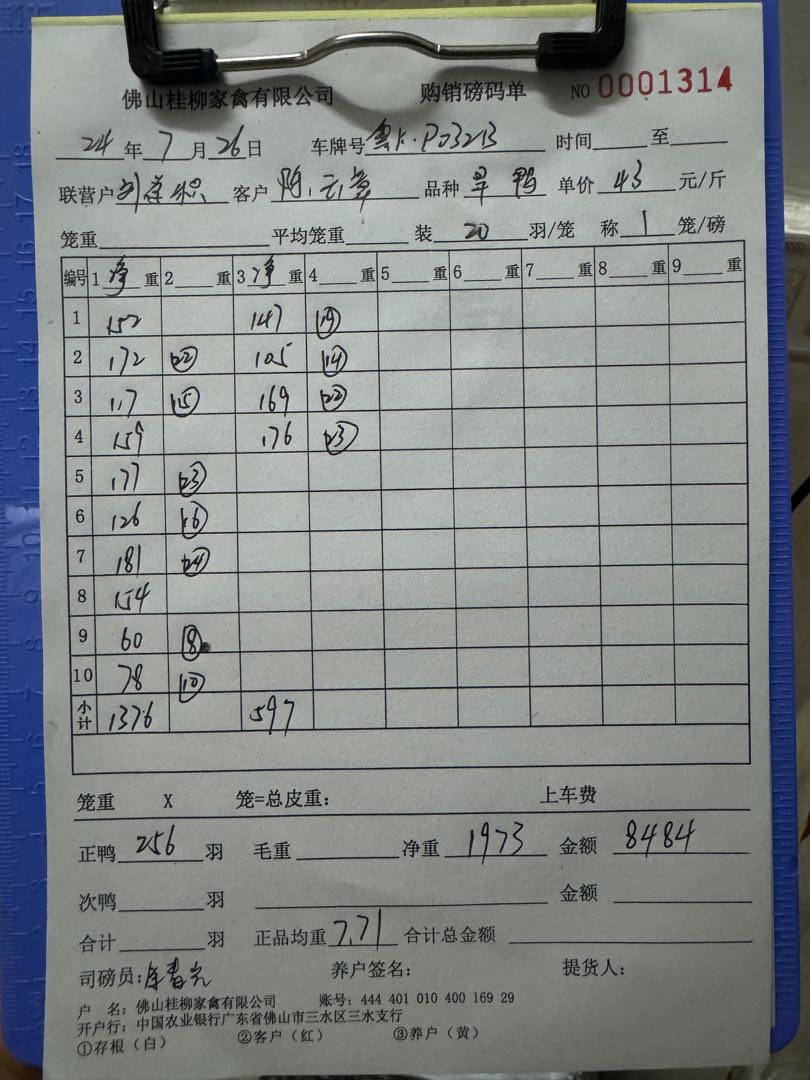 佛山桂柳家禽有限公司 购销磅码单 NO 0001314
24 年 7 月 26 日 车牌号 时间 至
联营户 客户 品种 旱鸭 单价 43 元/斤
笼重 平均笼重 装 20 羽/笼 称 1 笼/磅
编号 1 净 重 2 重 3 净 重 4 重 5 重 6 重 7 重 8 重 9 重
1 152 147 19
2 172 22 105 14
3 117 15 169 22
4 159 176 23
5 177 23
6 126 16
7 181 24
8 154
9 60 8
10 78 10
小计 1376 597
笼重 X 笼=总皮重: 上车费
正鸭 256 羽 毛重 净重 1973 金额 8484
次鸭 羽 金额
合计 羽 正品均重 7.71 合计总金额
司磅员: 养户签名: 提货人:
户 名: 佛山桂柳家禽有限公司 账号: 444 401 010 400 169 29
开户行: 中国农业银行广东省佛山市三水区三水支行
①存根(白) ②客户(红) ③养户(黄)